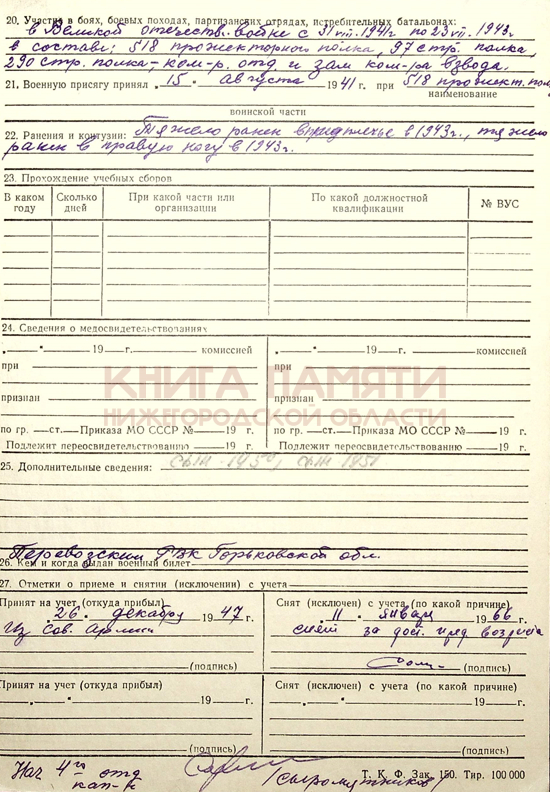 20. Участие в боях, боевых походах, партизанских отрядах, истребительных батальонах:
в Великой отечеств. войне с 31.VIII.1941г по 23.VII.1943г
в составе: 518 прожекторного полка, 97 стр. полка,
290 стр. полка – ком-р. отд и зам ком-ра взвода.
21. Военную присягу принял „15" августа 1941 г. при 518 прожект. пол
наименование
воинской части
22. Ранения и контузии: Тяжело ранен в предплечье в 1943г., тяжело
ранен в правую ногу в 1943г.
23. Прохождение учебных сборов
В каком году Сколько дней При какой части или организации По какой должностной квалификации № ВУС
24. Сведения о медосвидетельствованиях
„ " 19 г. комиссией „ " 19 г. комиссией
при при
КНИГА ПАМЯТИ
признан признан
НИЖЕГОРОДСКОЙ ОБЛАСТИ
по гр. ст. Приказа МО СССР № 19 г. по гр. ст. Приказа МО СССР № 19 г.
Подлежит переосвидетельствованию 19 г. Подлежит переосвидетельствованию 19 г.
25. Дополнительные сведения: 1951
Перевозский РВК Горьковской обл.
26. Кем и когда выдан военный билет
27. Отметки о приеме и снятии (исключении) с учета
Принят на учет (откуда прибыл) Снят (исключен) с учета (по какой причине)
„26" декабря 1947 г. „11" января 1966 г.
из Сов. Армии снят за дост. пред возраста
(подпись) (подпись)
Принят на учет (откуда прибыл) Снят (исключен) с учета (по какой причине)
„ " 19 г. „ " 19 г.
(подпись) (подпись)
Нач 4го отд
кап-н /Сыромятников/
Т. К. Ф. Зак. 150. Тир. 100 000